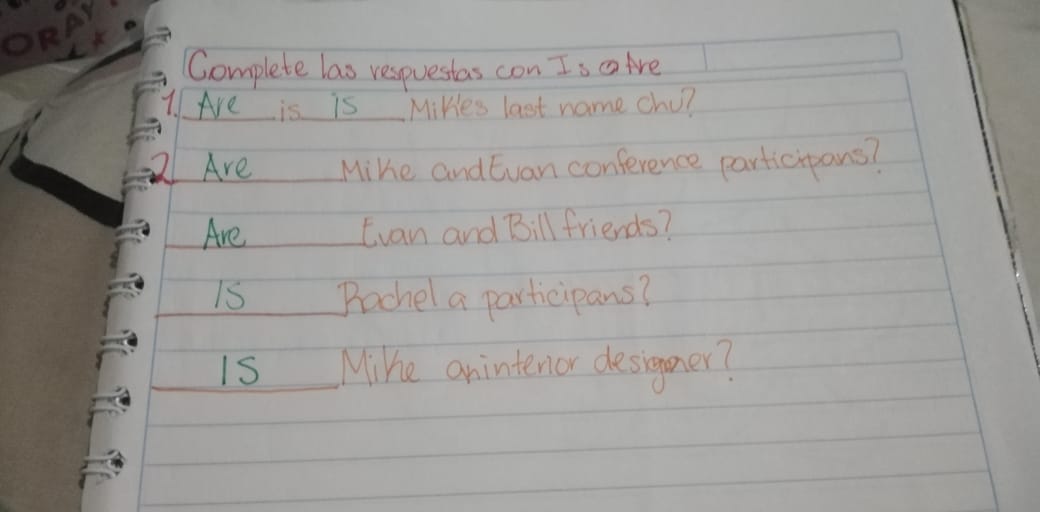 ORAY
Complete las respuestas con Is o Are
1. Are is is Mike's last name chu?
2 Are Mike and Evan conference participans?
Are Evan and Bill friends?
Is Rachel a participans?
Is Mike an interior designer?